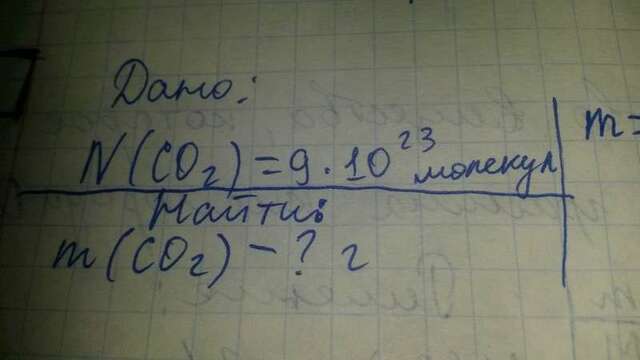 Дано:
N(CO₂)=9·10²³ молекул
Найти:
m(CO₂)-? г
m=